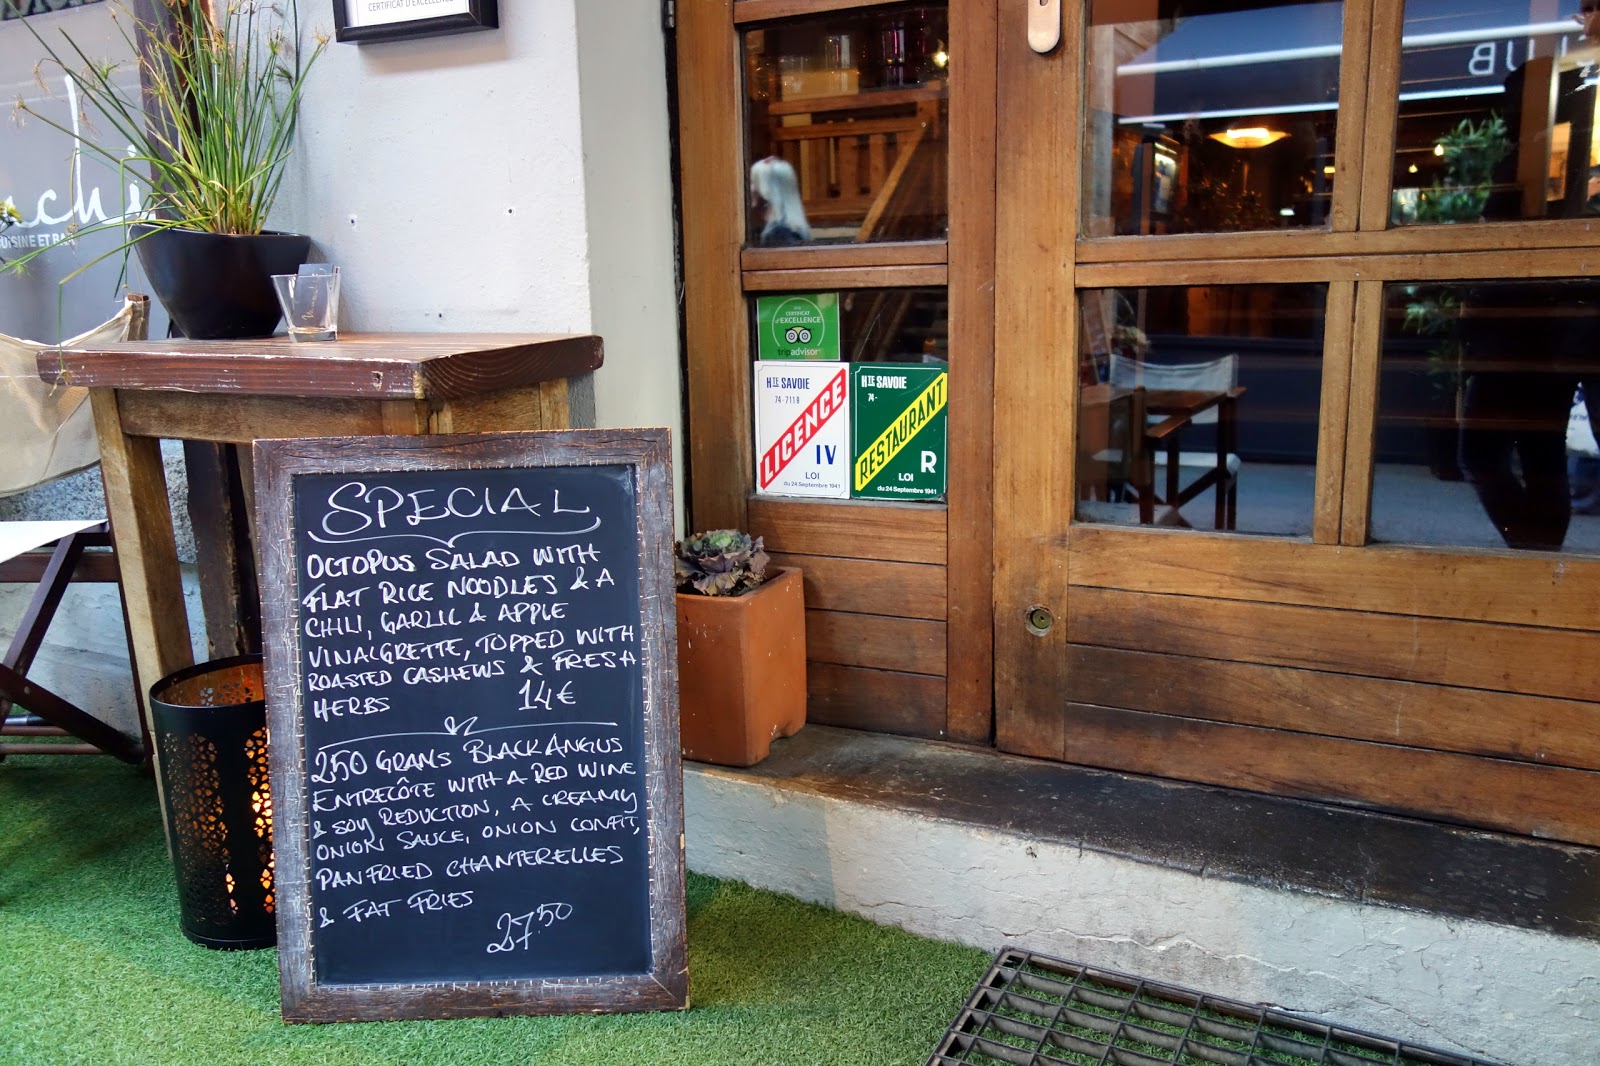 CERTIFICAT D'EXCELLENCE
CUISINE ET BAR
CERTIFICAT
d'EXCELLENCE
tripadvisor
HTE SAVOIE
74-7118
LICENCE
IV
LOI
du 24 Septembre 1941
HTE SAVOIE
74-
RESTAURANT
R
LOI
du 24 Septembre 1941
SPECIAL
OCTOPUS SALAD WITH
FLAT RICE NOODLES & A
CHILI, GARLIC & APPLE
VINAIGRETTE, TOPPED WITH
ROASTED CASHEWS & FRESH
HERBS 14€
250 GRAMS BLACK ANGUS
ENTRECÔTE WITH A RED WINE
& SOY REDUCTION, A CREAMY
ONION SAUCE, ONION CONFIT,
PANFRIED CHANTERELLES
& FAT FRIES
27.50